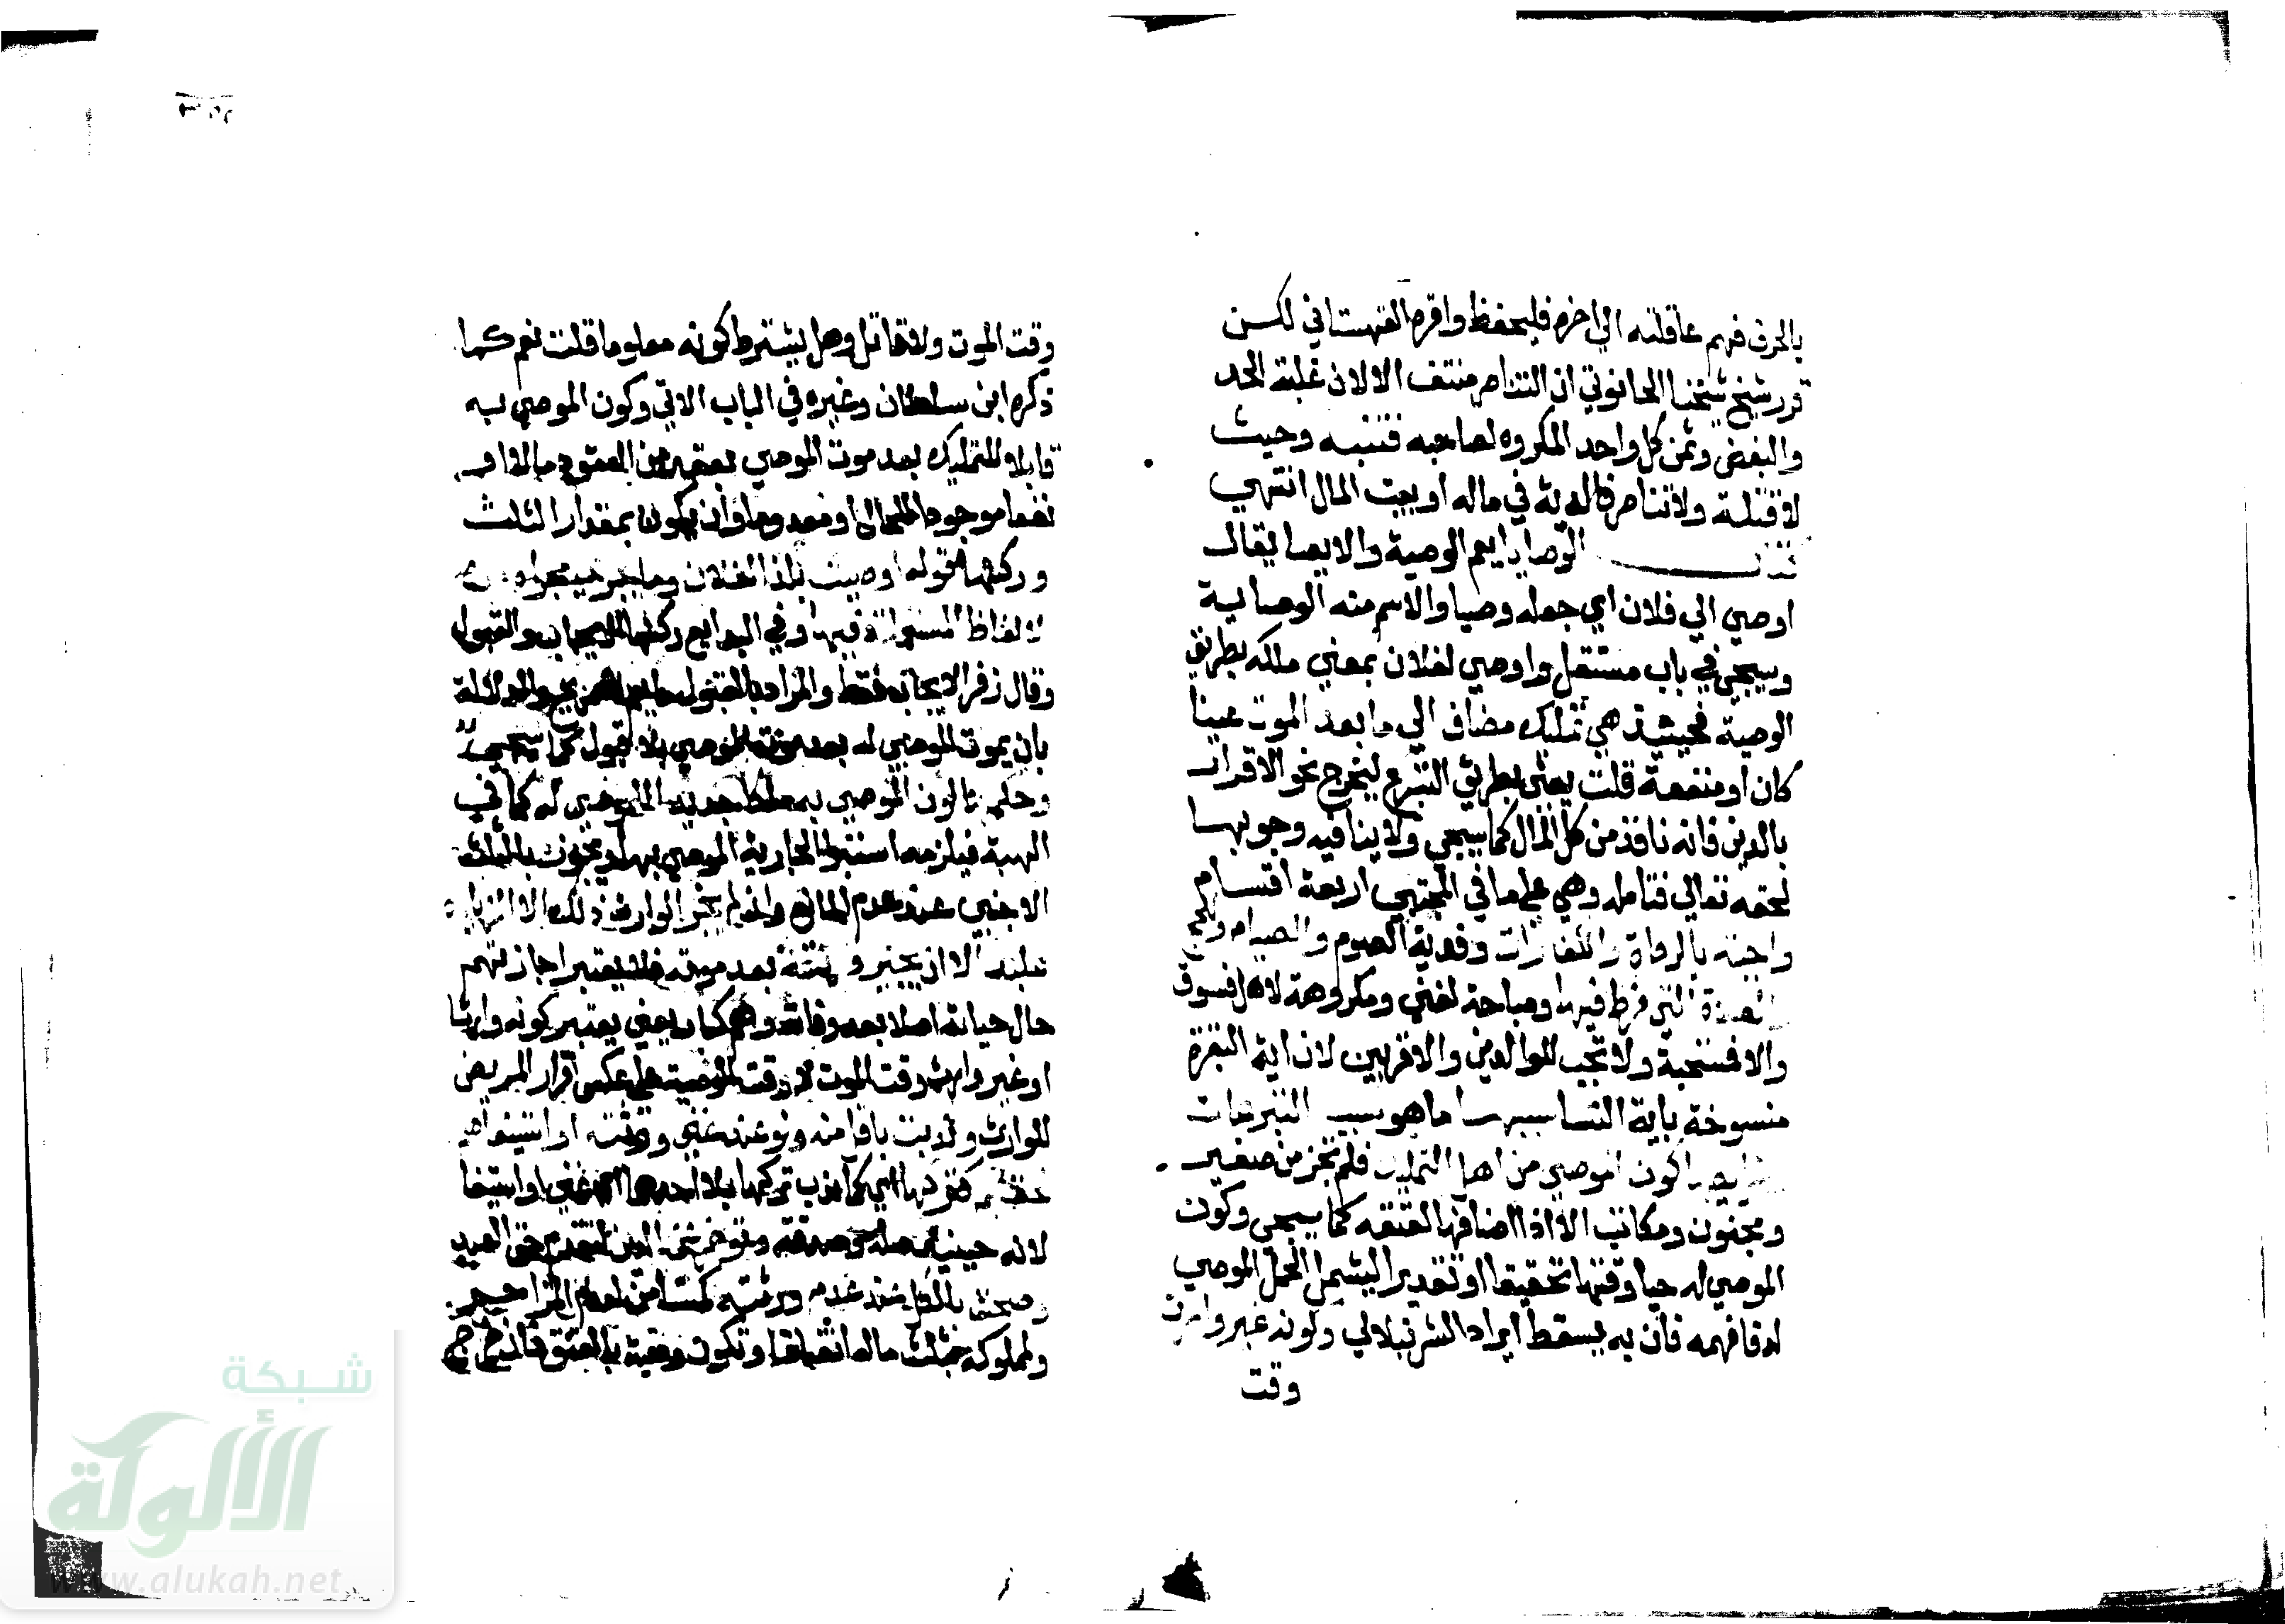 بالحرف فهم عاقلته الي اخره فليحفظ واقره القهستاني لكن
قرر شيخ شيخنا الحانوتي ان التناصر منتف الان لان غلبة الحد
والبغض وتمن كل واحد المكروه لصاحبه فتنبه وحيث
لا قبيلة ولا تناصر فالدية في ماله او بيت المال انتهي
كتاب الوصايا يعم الوصية والايصا يقال
اوصي الي فلان اي جعله وصيا والاسم منه الوصاية
وسيجي في باب مستقل واوصي لفلان بمعني ملكه بطريق
الوصية فحينئذ هي تمليك مضاف الي ما بعد الموت عينا
كان او منفعة قلت يعني بطريق التبرع ليخرج نحو الاقرار
بالدين فانه نافذ من كل المال كما سيجي ولا ينافيه وجوبها
لحقه تعالي فتامله وهي علي ما في المجتبي اربعة اقسام
واجبة بالزكاة والكفارات وفدية الصوم والصيام
الصلاة التي فرط فيها ومباحة لغني ومكروهة لاهل فسوق
والا فمستحبة ولا تجب للوالدين والاقربين لان اية البقرة
منسوخة باية النسا سببها ما هو سبب التبرعات
كون الموصي من اهل التمليك فلم تجز من صغير
ومجنون ومكاتب الا اذا اضافها لعتقه كما سيجي وكون
الموصي له حيا وقتها تحقيقا او تقديرا ليشمل الحمل الموصي
له فافهمه فان به يسقط ايراد الشرنبلالي وكونه غير وارث
وقت
وقت الموت ولا قاتل وهل يشترط كونه معلوما قلت نعم كما
ذكره ابن سلطان وغيره في الباب الاتي وكون الموصي به
قابلا للتمليك بعد موت الموصي بعقد من العقود مالا او
نفعا موجودا للحال او معدوما وان يكون بمقدار الثلث
وركنها قوله اوصيت بكذا لفلان وما يجري مجراه من
الالفاظ المستعملة فيها وفي البدايع ركنها الايجاب والقبول
وقال زفر الايجاب فقط والمراد بالقبول ما يعم الصريح والدلالة
بان يموت الموصي له بعد موت الموصي بلا قبول كما سيجي
وحكمها كون الموصي به ملكا جديدا للموصي له كما في
الهبة فيلزمه استبرا الجارية الموصي بها وتجوز بالثلث
الاجنبي عند عدم المانع وان لم يجز الوارث ذلك لا الزيادة
عليه الا ان يجيز ورثته بعد موته فلا يعتبر اجازتهم
حال حياته اصلا بعد وفاته وهم كبار يعني يعتبر كونه وارثا
او غير وارث وقت الموت لا وقت الوصية علي عكس اقرار المريض
للوارث وندبت باقل منه ولو عند غني ورثته او استغناهم
بحصتهم كتركها اي كما ندب تركها بلا احدهما اي غني او استغنا
لانه حينئذ صلة وصدقة وتوخر عن الدين لتقدم حق العبد
وصحت بالكل عند عدم ورثته كمستامن لعدم المزاحم
ولمملوكه بثلث ماله اتفاقا وتكون وصية بالعتق فان خرج
شبكة
الألوكة
www.alukah.net